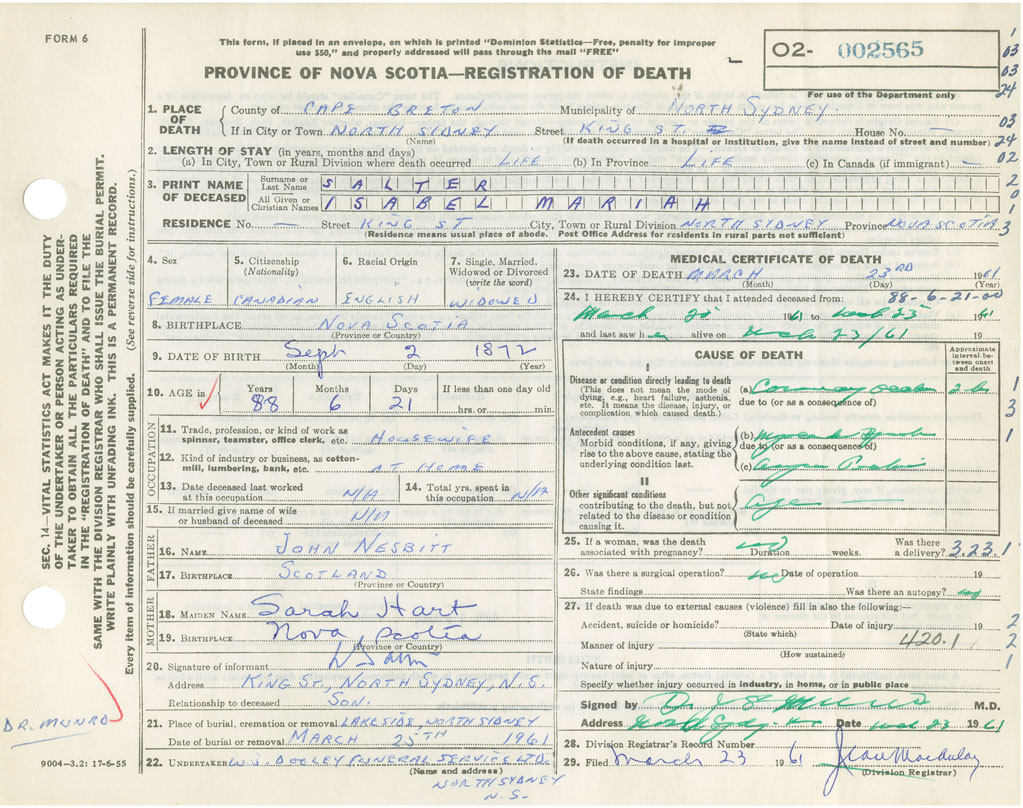 FORM 6
This form, if placed in an envelope, on which is printed "Dominion Statistics—Free, penalty for improper
use $50," and properly addressed will pass through the mail "FREE"
O2- 002565
For use of the Department only
PROVINCE OF NOVA SCOTIA—REGISTRATION OF DEATH
1. PLACE OF DEATH
County of CAPE BRETON Municipality of NORTH SYDNEY
If in City or Town NORTH SIDNEY Street KING ST. House No. —
(Name) (If death occurred in a hospital or institution, give the name instead of street and number)
2. LENGTH OF STAY (in years, months and days)
(a) In City, Town or Rural Division where death occurred LIFE (b) In Province LIFE (c) In Canada (if immigrant) —
3. PRINT NAME OF DECEASED
Surname or Last Name SALTER
All Given or Christian Names ISABEL MARIAH
RESIDENCE No. — Street KING ST City, Town or Rural Division NORTH SYDNEY Province NOVA SCOTIA
(Residence means usual place of abode. Post Office Address for residents in rural parts not sufficient)
4. Sex FEMALE
5. Citizenship (Nationality) CANADIAN
6. Racial Origin ENGLISH
7. Single, Married, Widowed or Divorced (write the word) WIDOWED
8. BIRTHPLACE NOVA SCOTIA
(Province or Country)
9. DATE OF BIRTH Sept 2 1872
(Month) (Day) (Year)
10. AGE in Years 88 Months 6 Days 21 If less than one day old hrs. or min.
OCCUPATION
11. Trade, profession, or kind of work as spinner, teamster, office clerk, etc. HOUSEWIFE
12. Kind of industry or business, as cotton-mill, lumbering, bank, etc. AT HOME
13. Date deceased last worked at this occupation N/A
14. Total yrs. spent in this occupation N/A
15. If married give name of wife or husband of deceased N/A
FATHER
16. NAME JOHN NESBITT
17. BIRTHPLACE SCOTLAND
(Province or Country)
MOTHER
18. MAIDEN NAME Sarah Hart
19. BIRTHPLACE Nova Scotia
(Province or Country)
20. Signature of informant
Address KING ST., NORTH SYDNEY, N.S.
Relationship to deceased SON.
21. Place of burial, cremation or removal LAKESIDE, NORTH SYDNEY
Date of burial or removal MARCH 25TH 1961
22. UNDERTAKER W.J. DOOLEY FUNERAL SERVICE LTD.
(Name and address)
NORTH SYDNEY
N.S.
MEDICAL CERTIFICATE OF DEATH
23. DATE OF DEATH MARCH 23RD 1961
(Month) (Day) (Year)
24. I HEREBY CERTIFY that I attended deceased from: 88-6-21-00
March 1961 to 23 1961
and last saw her alive on 23/61 19
CAUSE OF DEATH
Approximate interval between onset and death
I
Disease or condition directly leading to death
(This does not mean the mode of dying, e.g., heart failure, asthenia, etc. It means the disease, injury, or complication which caused death.)
(a) Coronary
due to (or as a consequence of)
Antecedent causes
Morbid conditions, if any, giving rise to the above cause, stating the underlying condition last.
(b)
due to (or as a consequence of)
(c)
II
Other significant conditions
contributing to the death, but not related to the disease or condition causing it.
Age
25. If a woman, was the death associated with pregnancy? no Duration weeks. Was there a delivery? 3.23.1
26. Was there a surgical operation? no Date of operation 19
State findings Was there an autopsy? no
27. If death was due to external causes (violence) fill in also the following:—
Accident, suicide or homicide? Date of injury 19
(State which)
Manner of injury 420.1
(How sustained)
Nature of injury
Specify whether injury occurred in industry, in home, or in public place
Signed by Dr. J. S. Munro M.D.
Address North Sydney Date 23 1961
28. Division Registrar's Record Number
29. Filed March 23 1961 Jean
(Division Registrar)
SEC. 14—VITAL STATISTICS ACT MAKES IT THE DUTY
OF THE UNDERTAKER OR PERSON ACTING AS UNDER-
TAKER TO OBTAIN ALL THE PARTICULARS REQUIRED
IN THE "REGISTRATION OF DEATH" AND TO FILE THE
SAME WITH THE DIVISION REGISTRAR WHO SHALL ISSUE THE BURIAL PERMIT.
WRITE PLAINLY WITH UNFADING INK. THIS IS A PERMANENT RECORD.
Every item of information should be carefully supplied. (See reverse side for instructions.)
DR. MUNRO
9004—3.2: 17-6-55
1
03
03
24
03
24
02
2
0
1
3
1
3
1
2
2
1